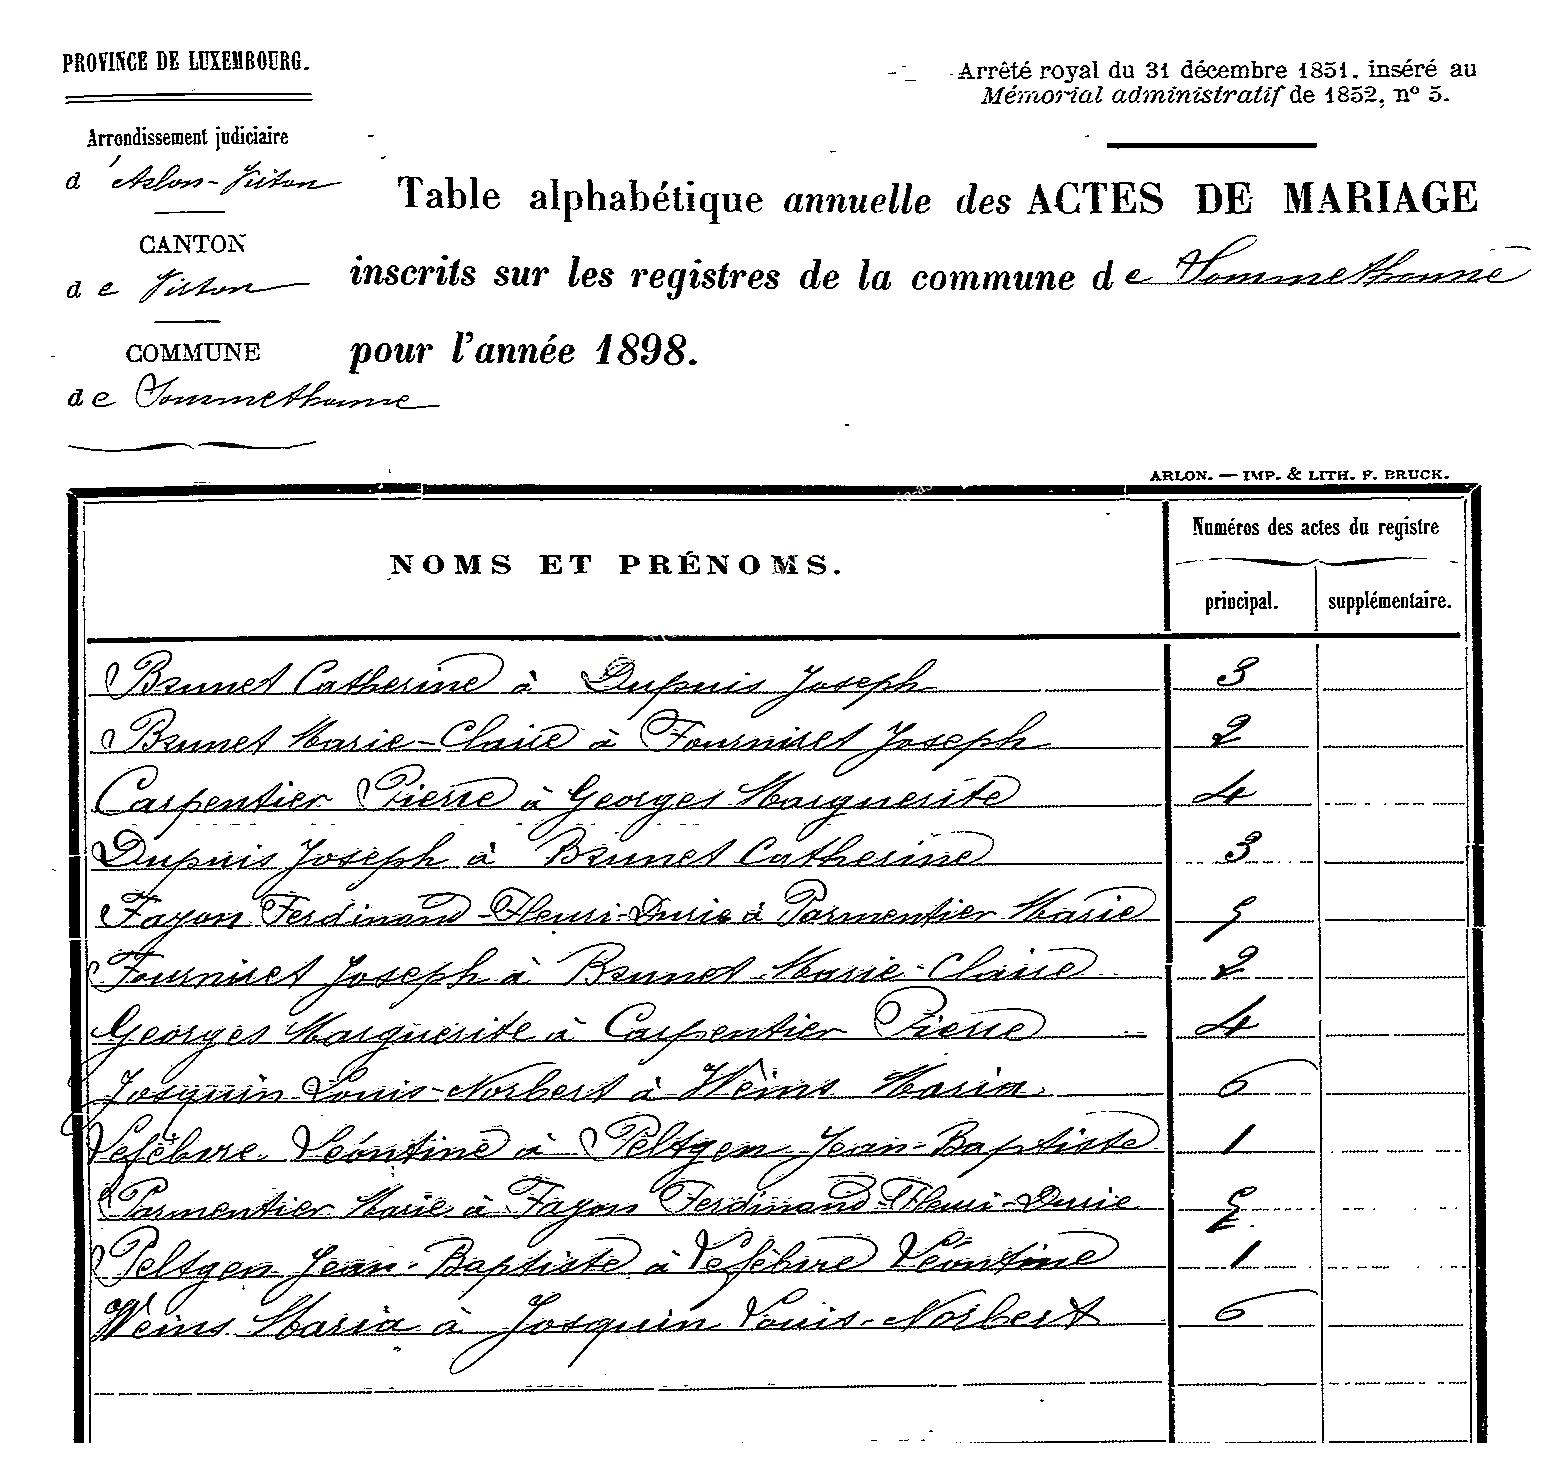 PROVINCE DE LUXEMBOURG.
Arrêté royal du 31 décembre 1851, inséré au
Mémorial administratif de 1852, nº 5.
Arrondissement judiciaire
d'Arlon-Virton
CANTON
de Virton
COMMUNE
de Sommethonne
Table alphabétique annuelle des ACTES DE MARIAGE
inscrits sur les registres de la commune de Sommethonne
pour l'année 1898.
ARLON. — IMP. & LITH. F. BRUCK.
NOMS ET PRÉNOMS.
Numéros des actes du registre
principal. supplémentaire.
Brunet Catherine à Dupuis Joseph 3
Brunet Marie-Claire à Fourniret Joseph 2
Carpentier Pierre à Georges Marguerite 4
Dupuis Joseph à Brunet Catherine 3
Fayon Ferdinand-Henri-Durie à Parmentier Marie 5
Fourniret Joseph à Brunet Marie-Claire 2
Georges Marguerite à Carpentier Pierre 4
Josquin Louis-Norbert à Weins Maria 6
Lefèbvre Léontine à Peltgen Jean-Baptiste 1
Parmentier Marie à Fayon Ferdinand-Henri-Durie 5
Peltgen Jean-Baptiste à Lefèbvre Léontine 1
Weins Maria à Josquin Louis-Norbert 6